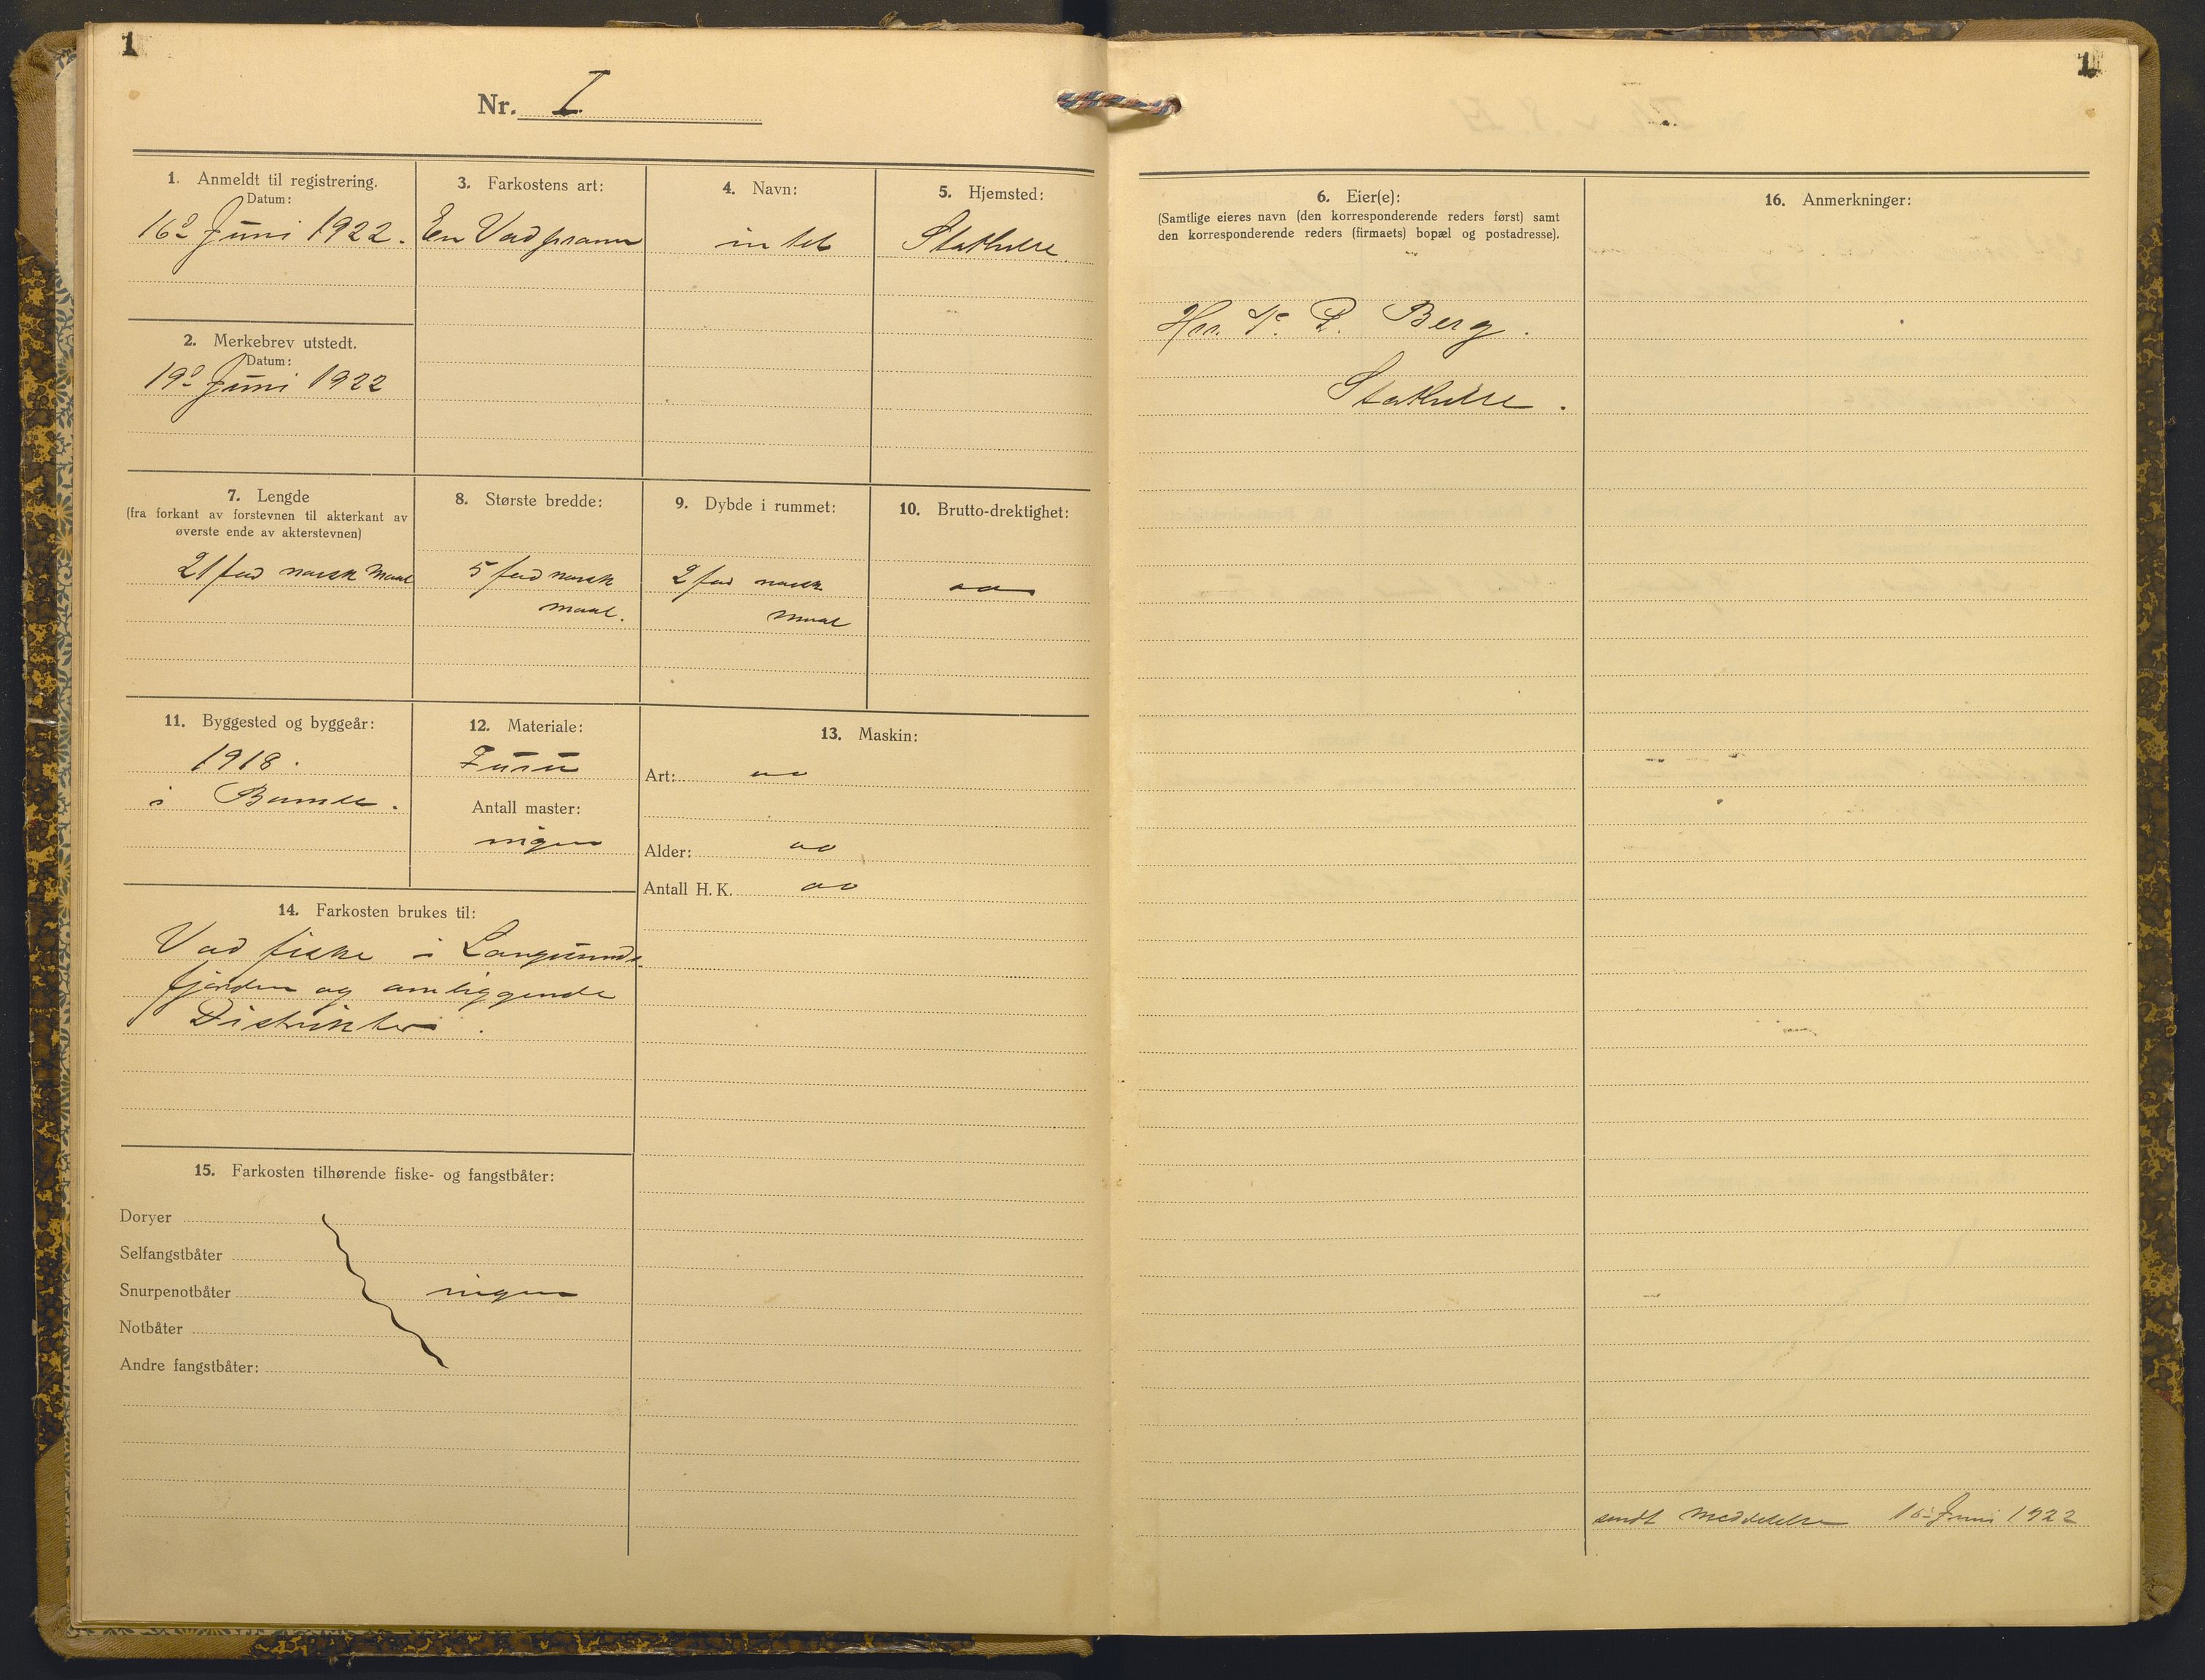 1
Nr. I
1. Anmeldt til registrering.
Datum:
16d Juni 1922.
2. Merkebrev utstedt.
Datum:
19d Juni 1922
3. Farkostens art:
En Vadpram
4. Navn:
intet
5. Hjemsted:
Stathelle.
7. Lengde
(fra forkant av forstevnen til akterkant av
øverste ende av akterstevnen)
21 fod norsk maal
8. Største bredde:
5 fod norsk
maal.
9. Dybde i rummet:
2 fod norsk
maal
10. Brutto-drektighet:
11. Byggested og byggeår:
1918.
i Bamble.
12. Materiale:
Furu
Antall master:
ingen
13. Maskin:
Art:
Alder:
Antall H. K.
14. Farkosten brukes til:
Vad fiske i Langesunds-
fjorden og omliggende
Distrikter.
15. Farkosten tilhørende fiske- og fangstbåter:
Doryer
Selfangstbåter
Snurpenotbåter ingen
Notbåter
Andre fangstbåter:
1
6. Eier(e):
(Samtlige eieres navn (den korresponderende reders først) samt
den korresponderende reders (firmaets) bopæl og postadresse).
Hrr. Berg.
Stathelle.
16. Anmerkninger:
sendt meddelelse 16 Juni 1922